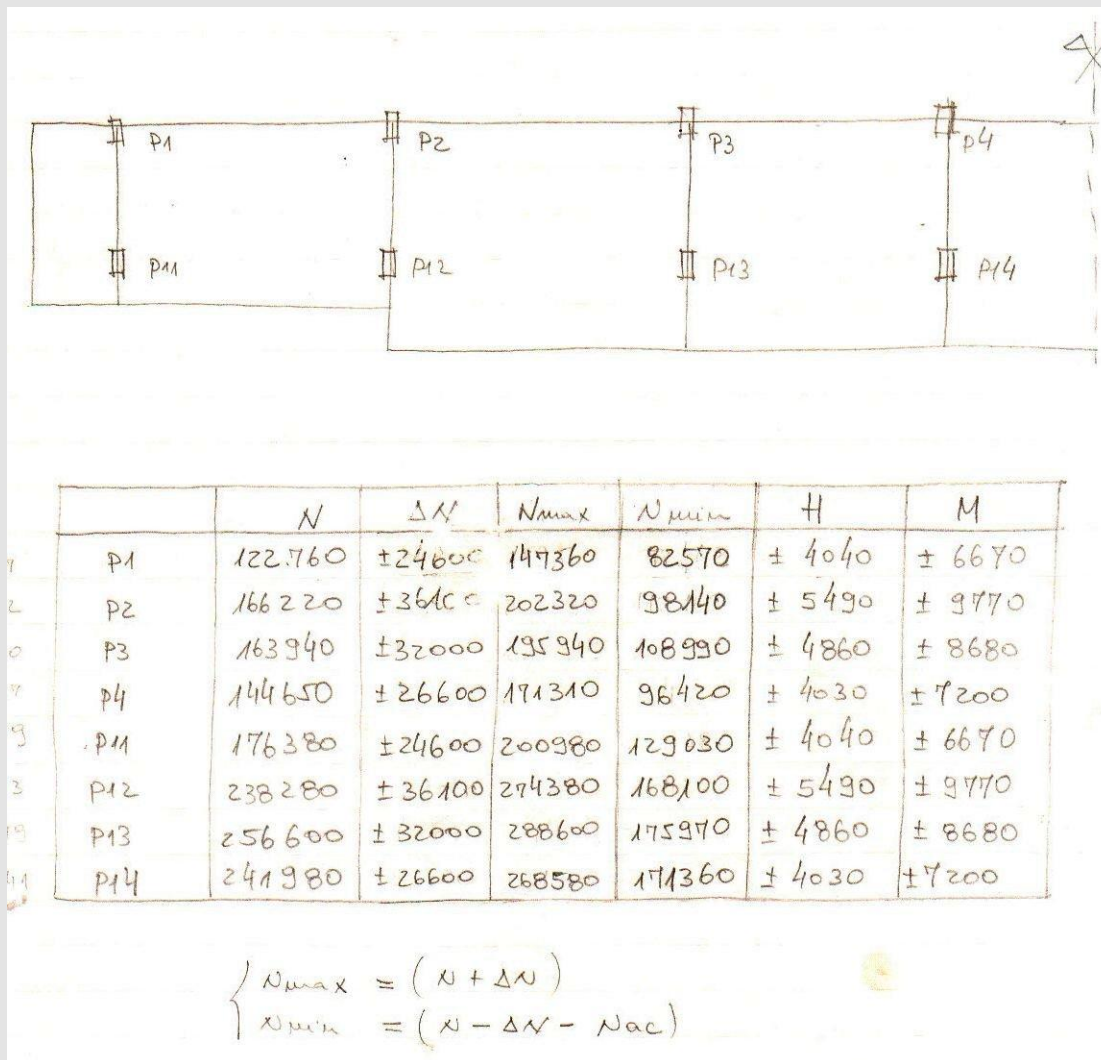 P1 P2 P3 P4
P11 P12 P13 P14
N ΔN Nmax Nmin H M
P1 122.760 ±24600 147360 82570 ± 4040 ± 6670
P2 166220 ±36100 202320 98140 ± 5490 ± 9770
P3 163940 ±32000 195940 108990 ± 4860 ± 8680
P4 144650 ±26600 171310 96420 ± 4030 ±7200
P11 176380 ±24600 200980 129030 ± 4040 ± 6670
P12 238280 ±36100 274380 168100 ± 5490 ± 9770
P13 256600 ±32000 288600 175970 ± 4860 ± 8680
P14 241980 ±26600 268580 171360 ± 4030 ±7200
Nmax = (N + ΔN)
Nmin = (N - ΔN - Nac)